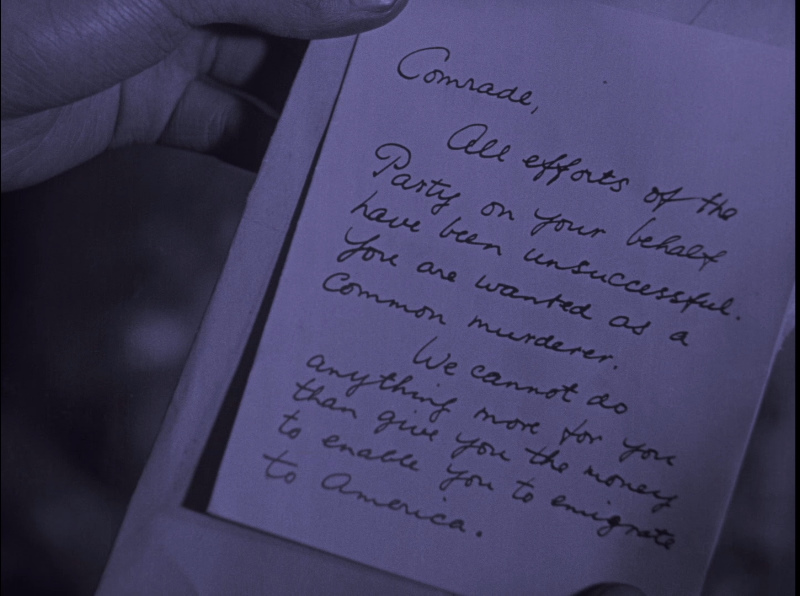 Comrade,
All efforts of the
Party on your behalf
have been unsuccessful.
You are wanted as a
common murderer.
We cannot do
anything more for you
than give you the money
to enable you to emigrate
to America.